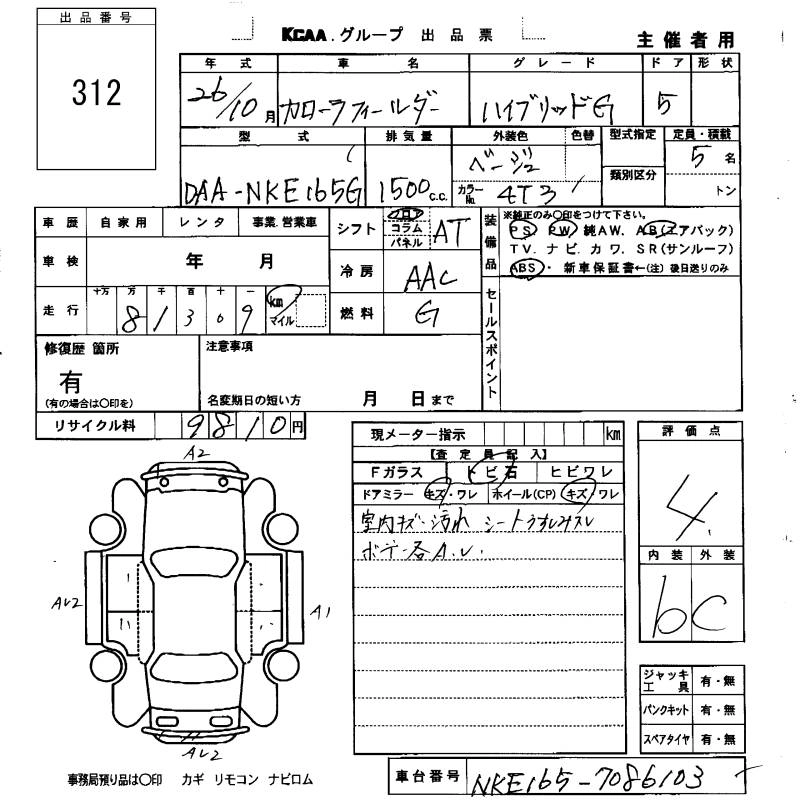 出品番号
312
KCAA.グループ 出品票
主催者用
年式 車名 グレード ドア 形状
26/10月 カローラフィールダー ハイブリッドG 5
型式 排気量 外装色 色替 型式指定 定員・積載
DAA-NKE165G 1500c.c. ベージュ 5名
カラーNo. 4T3 類別区分 トン
車歴 自家用 レンタ 事業.営業車
シフト フロア コラム パネル AT
車検 年 月
冷房 AAC
走行 十万 万 千 百 十 一
81309 km マイル
燃料 G
装備品 ※純正のみ〇印をつけて下さい。
PS PW 純AW. AB(エアバック)
TV. ナビ. カワ. SR(サンルーフ)
ABS ・ 新車保証書←(注)後日送りのみ
セールスポイント
修復歴 箇所
有
(有の場合は〇印を)
注意事項
名変期日の短い方 月 日まで
リサイクル料 9810円
現メーター指示 km
【査定員記入】
Fガラス トビ石 ヒビワレ
ドアミラー キズ・ワレ ホイール(CP) キズ/ワレ
室内キズ汚れ シートうすしみスレ
ボデー各A.U.
評価点
4.
内装 外装
b C
A2
AU2
A1
AU2
ジャッキ工具 有・無
パンクキット 有・無
スペアタイヤ 有・無
事務局預り品は〇印 カギ リモコン ナビロム
車台番号 NKE165-7086103